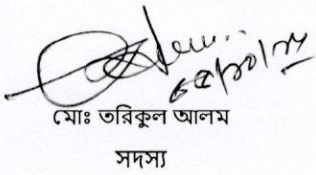 মোঃ তরিকুল আলম
সদস্য